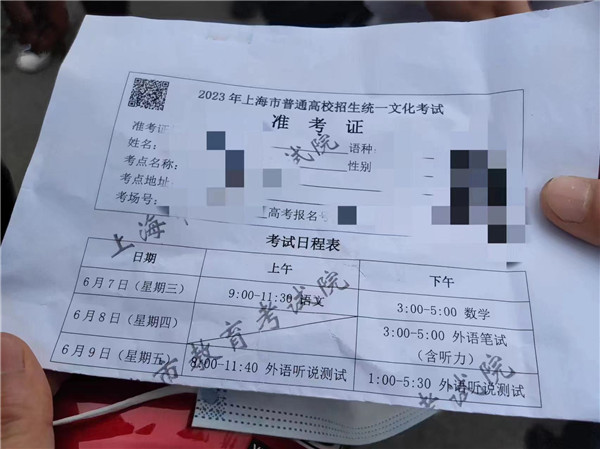 2023年上海市普通高校招生统一文化考试
准 考 证
准考证
姓名: 语种
考点名称: 性别
考点地址:
考场号: 高考报名号
考试日程表
日期 上午 下午
6月7日(星期三) 9:00-11:30 语文 3:00-5:00 数学
6月8日(星期四) 3:00-5:00 外语笔试
(含听力)
6月9日(星期五) 8:00-11:40 外语听说测试 1:00-5:30 外语听说测试
上海
试院
市教育考试院
考试院